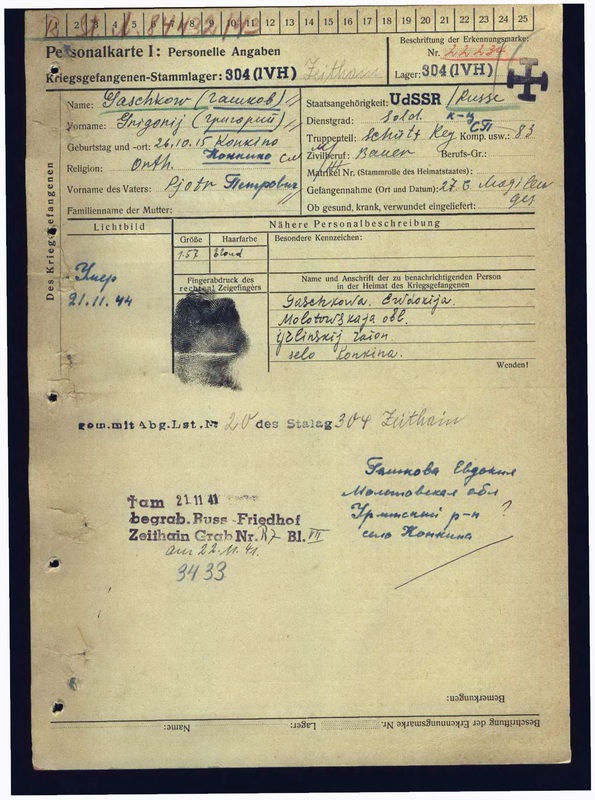 2 3 4 5 6 7 8 9 10 11 12 13 14 15 16 17 18 19 20 21 22 23 24 25
Personalkarte I: Personelle Angaben
Kriegsgefangenen-Stammlager: 304 (IVH) Zeithain
Beschriftung der Erkennungsmarke:
Nr.
Lager: 304 (IVH)
Des Kriegsgefangenen
Name: Gaschkow (Гашков)
Vorname: Grigorij (Григорий)
Geburtstag und -ort: 26.10.15 Konkino
Конкино
Religion: Orth.
Vorname des Vaters: Pjotr Петрович
Familienname der Mutter:
Staatsangehörigkeit: UdSSR / Russe
Dienstgrad: Sold. к-ц
Truppenteil: Schütz Reg СП Komp. usw.: 83
Zivilberuf: Bauer Berufs-Gr.:
Matrikel Nr. (Stammrolle des Heimatstaates):
Gefangennahme (Ort und Datum):
Ob gesund, krank, verwundet eingeliefert: ges
Lichtbild
Умер
21.11.44
Nähere Personalbeschreibung
Größe Haarfarbe Besondere Kennzeichen:
1.57 blond
Fingerabdruck des
rechten! Zeigefingers
Name und Anschrift der zu benachrichtigenden Person
in der Heimat des Kriegsgefangenen
Gaschkowa. Ewdokija.
Molotowskaja obl.
raion.
selo Konkina.
Wenden!
gem. mit Abg. Lst. Nr 20 des Stalag 304 Zeithain
Гашкова Евдокия
Молотовская обл
р-н ?
село Конкина
† am 21.11.41
begrab. Russ-Friedhof
Zeithain Grab Nr. Bl. VII
am 22.11.41.
3433
Bemerkungen:
Name: Lager: Beschriftung der Erkennungsmarke Nr.